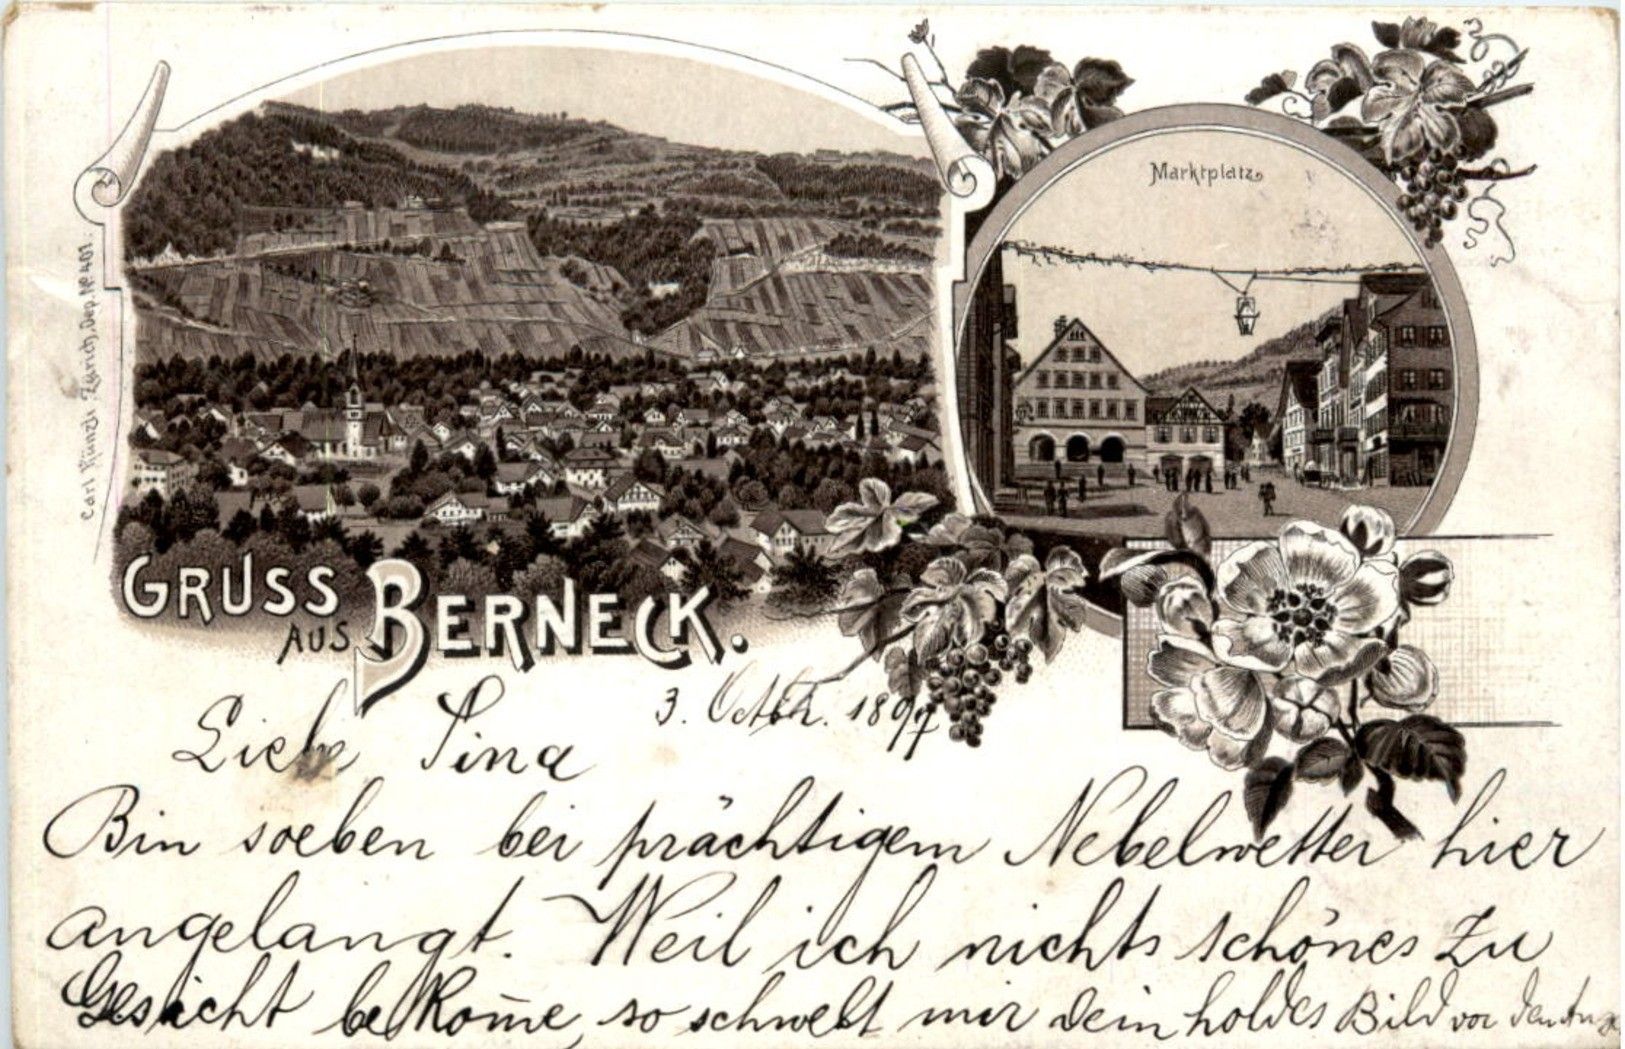 Marktplatz
Carl Künzli Zürich, Dep. No 401.
GRUSS
AUS BERNECK.
3. Octbr. 1897
Liebe Tina
Bin soeben bei prächtigem Nebelwetter hier
angelangt. Weil ich nichts schönes zu
Gesicht bekom̄e, so schwebt mir dein holdes Bild vor den